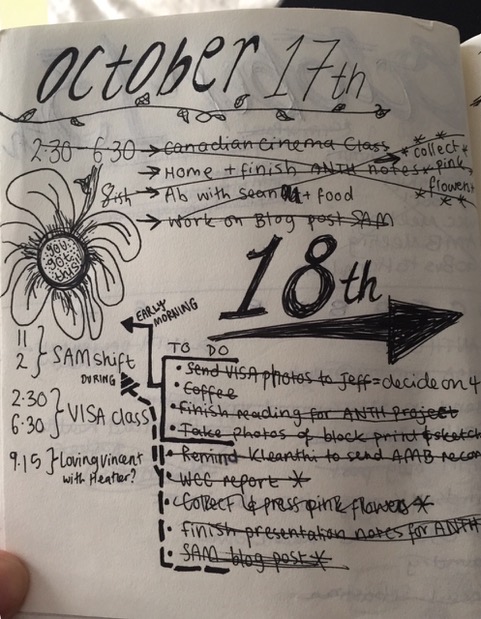 october 17th
2:30 - 6:30 → Canadian Cinema Class
→ Home + finish ANTH notes
* collect *
* pink
* flowers
8ish → Ab with Sean + food
→ Work on Blog post SAM
you've got this
18th
EARLY MORNING
11
2 } SAM shift
DURING
2:30
6:30 } VISA class
9.15 } Loving Vincent
with Heather?
TO DO
• Send VISA photos to Jeff = decide on 4
• Coffee
• Finish reading for ANTH project
• Take photos of block print & sketch
• Remind Kleanthi to send AMB recon
• WCC report *
• Collect & press pink flowers *
• finish presentation notes for ANTH
• SAM blog post *